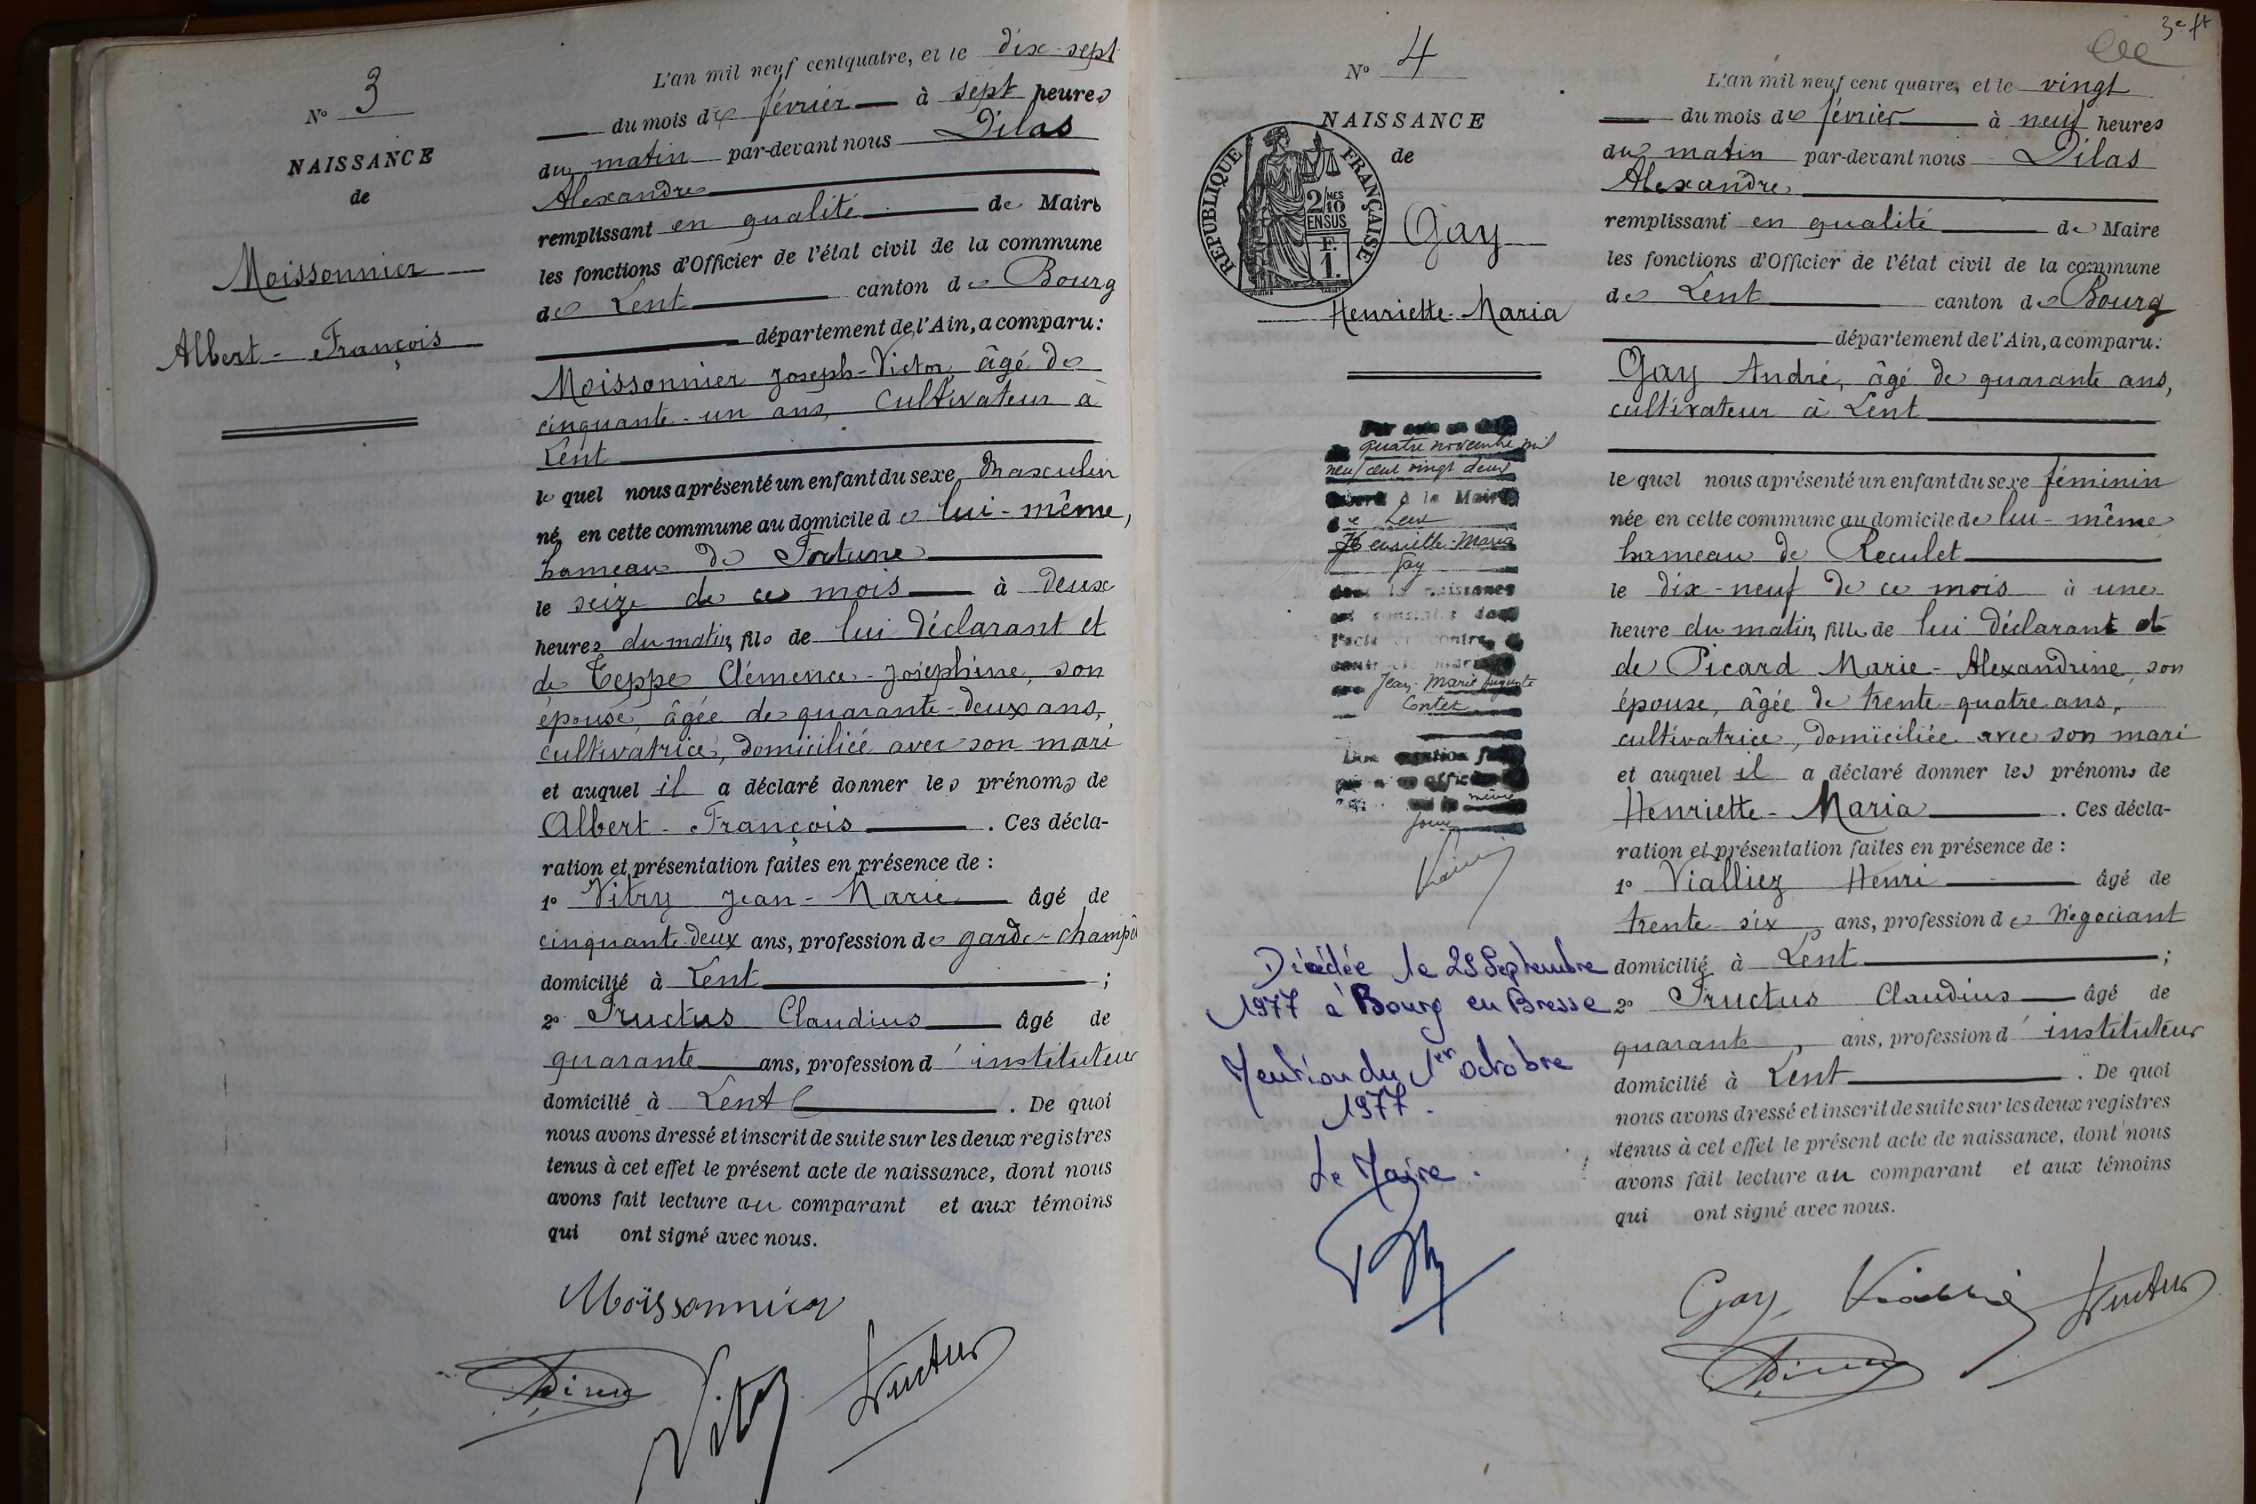 N° 3
NAISSANCE
de
Moissonnier
Albert - François
L'an mil neuf cent quatre, et le dix-sept
du mois de février à sept heures
du matin par-devant nous Dilas
Alexandre
remplissant en qualité de Maire
les fonctions d'Officier de l'état civil de la commune
de Lent canton de Bourg
département de l'Ain, a comparu :
Moissonnier Joseph-Victor, âgé de
cinquante-un ans, cultivateur à
Lent
lequel nous a présenté un enfant du sexe masculin
né, en cette commune au domicile de lui-même,
hameau de Fortune
le seize de ce mois à deux
heures du matin, fils de lui déclarant et
de Teppe Clémence-Joséphine, son
épouse, âgée de quarante-deux ans,
cultivatrice, domiciliée avec son mari
et auquel il a déclaré donner les prénoms de
Albert - François . Ces décla-
ration et présentation faites en présence de :
1° Vitry Jean-Marie âgé de
cinquante-deux ans, profession de garde-champê
domicilié à Lent ;
2° Fructus Claudius âgé de
quarante ans, profession d'instituteur
domicilié à Lent . De quoi
nous avons dressé et inscrit de suite sur les deux registres
tenus à cet effet le présent acte de naissance, dont nous
avons fait lecture au comparant et aux témoins
qui ont signé avec nous.
Moissonnier
Vitry Fructus
3e ft
N° 4
NAISSANCE
de
REPUBLIQUE FRANÇAISE
2/10 ES
EN SUS
F.
1.
Gay
Henriette-Maria
quatre novembre mil
neuf cent vingt deux
à la Mairie
de Lent
Henriette-Maria
Gay
dont la naissance
est constatée dans
l'acte ci-contre, a
contracté mariage
avec Jean-Marie Auguste
même
jour
Décédée le 28 Septembre
1977 à Bourg en Bresse
Mention du 1er octobre
1977.
Le Maire.
L'an mil neuf cent quatre, et le vingt
du mois de février à neuf heures
du matin par-devant nous Dilas
Alexandre
remplissant en qualité de Maire
les fonctions d'Officier de l'état civil de la commune
de Lent canton de Bourg
département de l'Ain, a comparu :
Gay André, âgé de quarante ans,
cultivateur à Lent
lequel nous a présenté un enfant du sexe féminin
née en cette commune au domicile de lui-même
hameau de Reculet
le dix-neuf de ce mois à une
heure du matin, fille de lui déclarant et
de Picard Marie-Alexandrine, son
épouse, âgée de trente-quatre ans,
cultivatrice, domiciliée avec son mari
et auquel il a déclaré donner les prénoms de
Henriette-Maria . Ces décla-
ration et présentation faites en présence de :
1° Vialliez Henri âgé de
trente-six ans, profession de Négociant
domicilié à Lent ;
2° Fructus Claudius âgé de
quarante, ans, profession d'instituteur
domicilié à Lent . De quoi
nous avons dressé et inscrit de suite sur les deux registres
tenus à cet effet le présent acte de naissance, dont nous
avons fait lecture au comparant et aux témoins
qui ont signé avec nous.
Gay Fructus